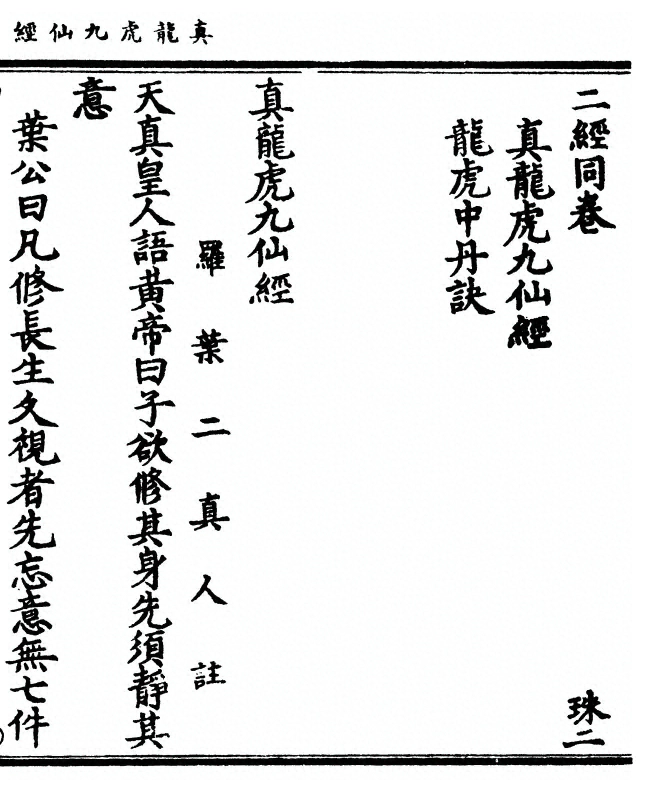 真龍虎九仙經
二經同卷
珠二
真龍虎九仙經
龍虎中丹訣
真龍虎九仙經
羅葉二真人註
天真皇人語黃帝曰子欲修其身先須靜其
意
葉公曰凡修長生久視者先忘意無七件